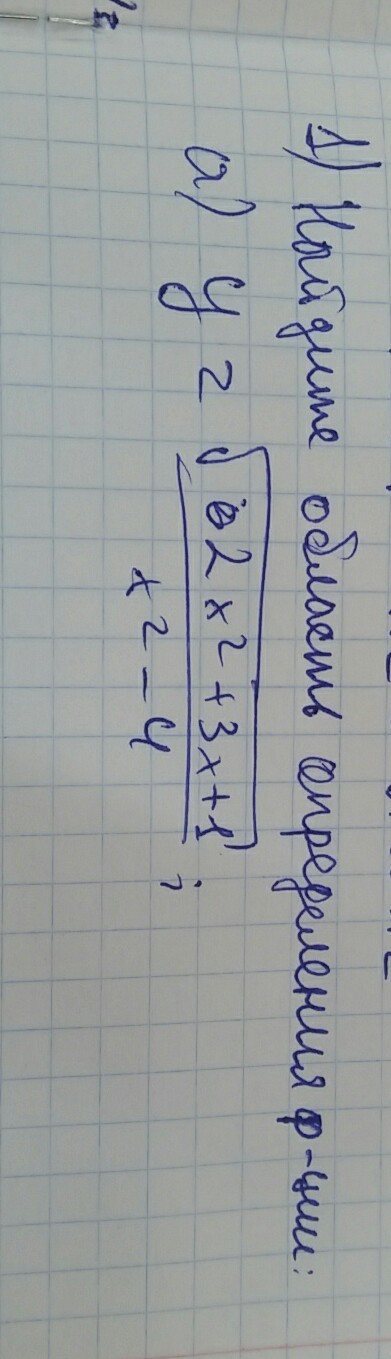 1) Найдите область определения ф-ции:
а) y = √2x²+3x+1
x²-4 ;